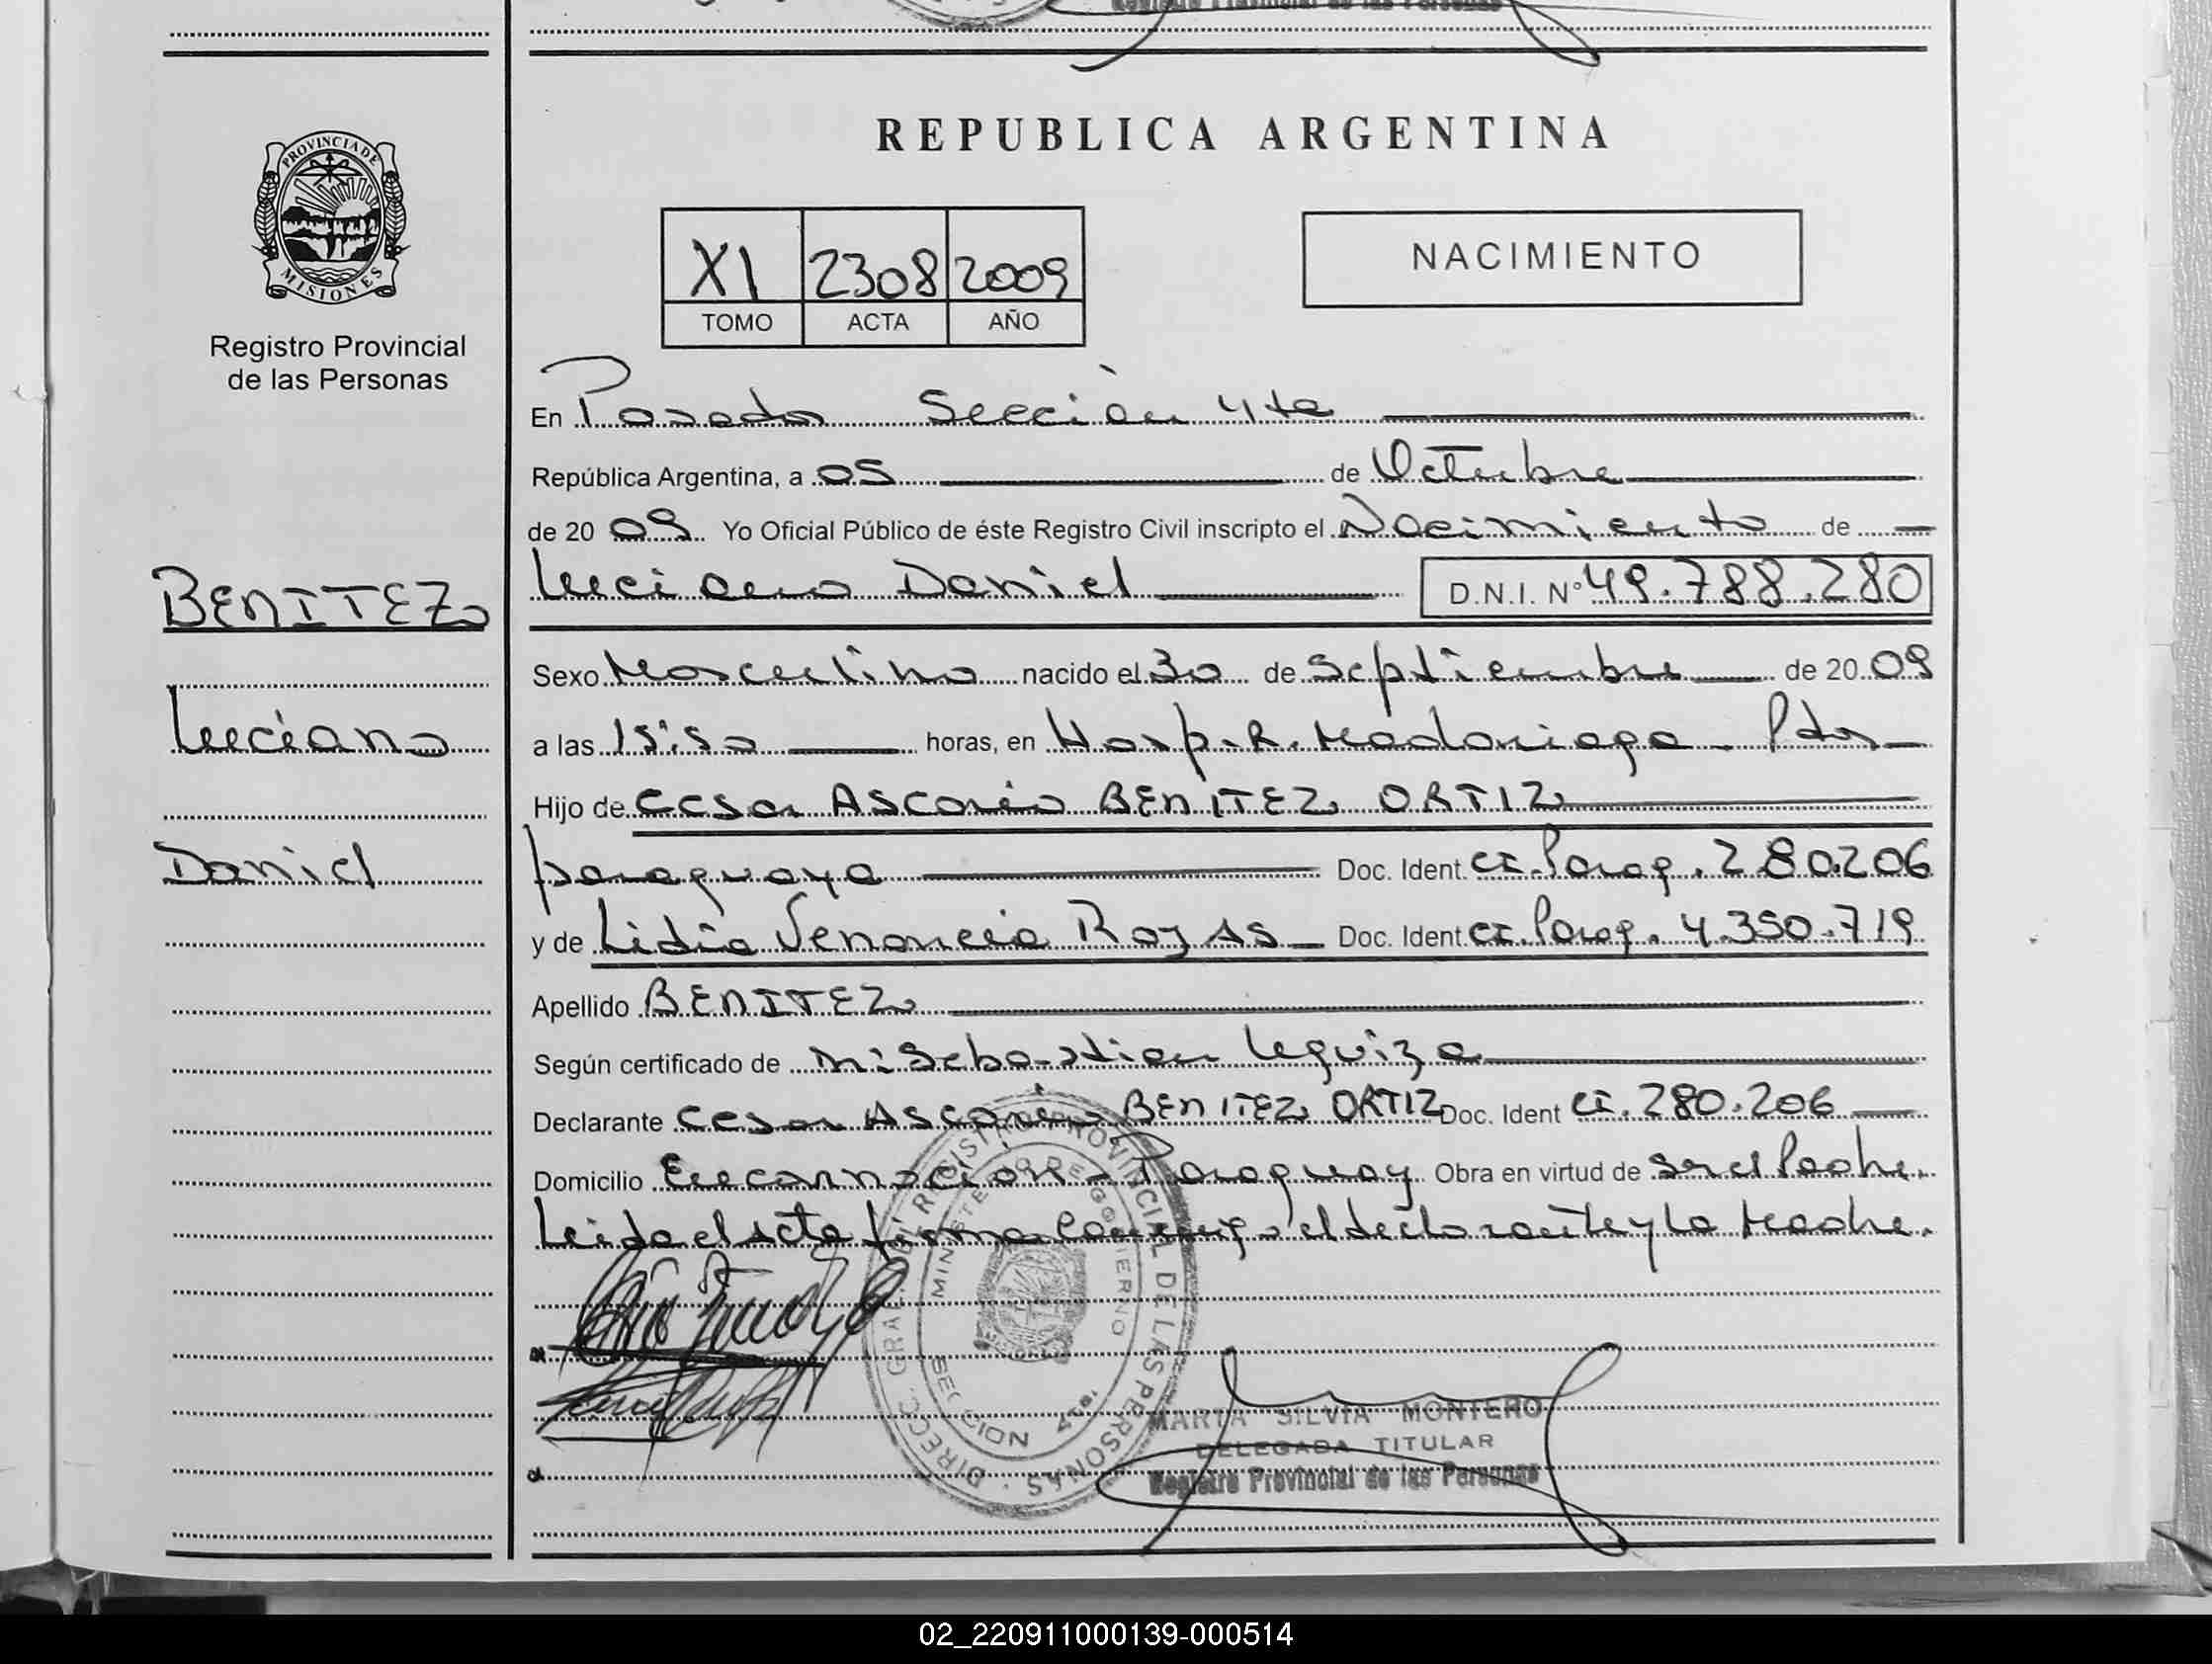 Registro Provincial de las Personas
PROVINCIA DE
MISIONES
Registro Provincial
de las Personas
BENITEZ
Luciano
Daniel
REPUBLICA ARGENTINA
XI 2308 2009
TOMO ACTA AÑO
NACIMIENTO
En Posadas Sección 4ta
República Argentina, a 05 de Octubre
de 20 09 Yo Oficial Público de éste Registro Civil inscripto el Nacimiento de
Luciano Daniel D.N.I. Nº 49.788.280
Sexo Masculino nacido el 30 de Septiembre de 20 09
a las 15:50 horas, en Hosp. R. Madariaga - Pdas
Hijo de Cesar Ascario BENITEZ ORTIZ
paraguaya Doc. Ident. CI. Parag. 280.206
y de Lidia Venancia Rojas Doc. Ident CI. Parag. 4.350.719
Apellido BENITEZ
Según certificado de Sebastian Leguiza
Declarante Cesar Ascario BENITEZ ORTIZ Doc. Ident CI. 280.206
Domicilio Encarnación - Paraguay Obra en virtud de ser el Padre.
Leida el acta firman conmigo el declarante y la Madre.
DIRECC. GRAL. DEL REGISTRO PROVINCIAL DE LAS PERSONAS
MINISTERIO DE GOBIERNO
SECCION 4ta.
MARTA SILVIA MONTERO
DELEGADA TITULAR
Registro Provincial de las Personas
02_220911000139-000514